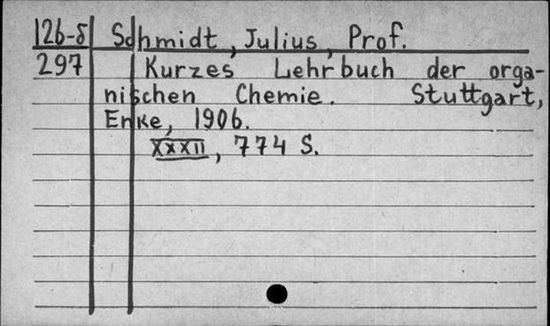 126-δ Schmidt, Julius, Prof.
297 Kurzes Lehrbuch der orga-
nischen Chemie. Stuttgart,
Enke, 1906.
XXXII, 774 S.